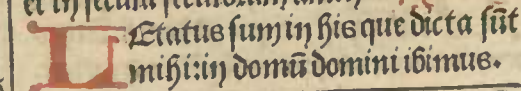 Lętatus sum in his que dicta sūt
mihi: in domū domini ibimus.